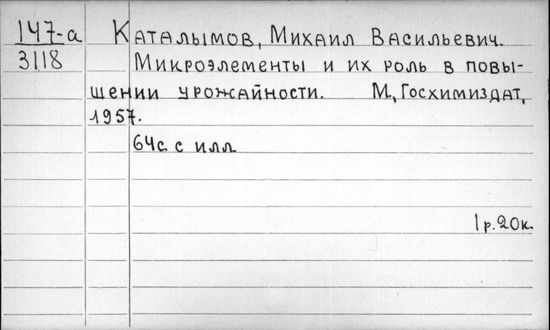 147-а
3118
Каталымов, Михаил Васильевич.
Микроэлементы и их роль в повы-
шении урожайности. М., Госхимиздат,
1957.
64с. с илл.
1 р. 20 к.